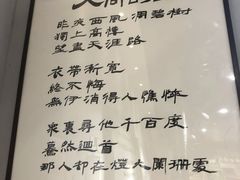 昨夜西風凋碧樹
獨上高樓
望盡天涯路
衣帶漸寬
終不悔
為伊消得人憔悴
衆裏尋他千百度
驀然迴首
那人卻在燈火闌珊處